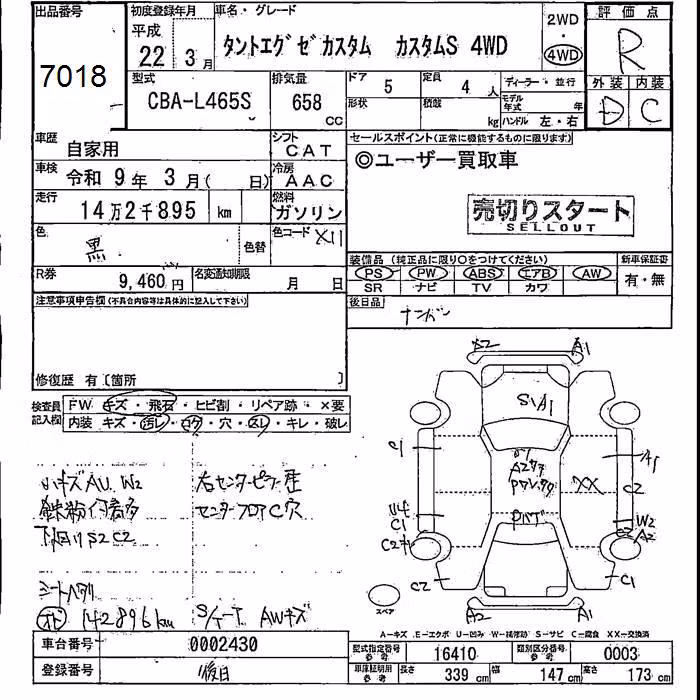 出品番号 初度登録年月 車名・グレード 2WD 評価点
平成
7018 22年 3月 タントエグゼカスタム カスタムS 4WD 4WD R
型式 排気量 ドア 5 定員 4人 ディーラー・並行 外装 内装
CBA-L465S 658 CC 形状 積載 kg モデル年式 年 ハンドル 左・右 D C
車歴 自家用 シフト CAT セールスポイント(正常に機能するものに限ります)
車検 令和 9年 3月( 日) 冷房 AAC ◎ユーザー買取車
走行 14万2千895 km 燃料 ガソリン 売切りスタート
SELLOUT
色 黒 色替 色コード X11
装備品 (純正品に限り○をつけてください) 新車保証書
R券 9,460円 名変通知期限 月 日 PS PW ABS エアB AW 有・無
SR ナビ TV カワ
注意事項申告欄(不具合内容等は具体的に記入して下さい) 後日品 ナンバー
修復歴 有〔箇所 〕
検査員記入欄 FW キズ・飛石・ヒビ割・リペア跡・×要
内装 キズ・汚レ・コゲ・穴・スレ・キレ・破レ
小キズAU W2 右センターピラー歪
鉄粉付着多 センターフロアC穴
下回りS2 C2
シートヘタリ
142896km S/T-T AWキズ
A2 A1
S1A1
C1 A1
XX C2
C1 W2
C2 A2
C2 C1
スペア
A2 A1
A-キズ E-エクボ U-凹み W-補修跡 S-サビ C-腐食 XX-交換済
車台番号 0002430 型式指定番号 参考 16410 類別区分番号 参考 0003
登録番号 後日 車庫証明用 参考 長さ 339 cm 幅 147 cm 高さ 173 cm